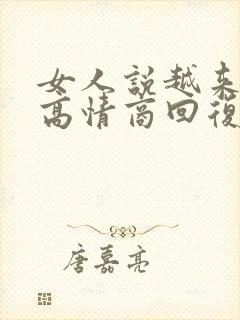 女人說越来
高情商回復
唐嘉亮